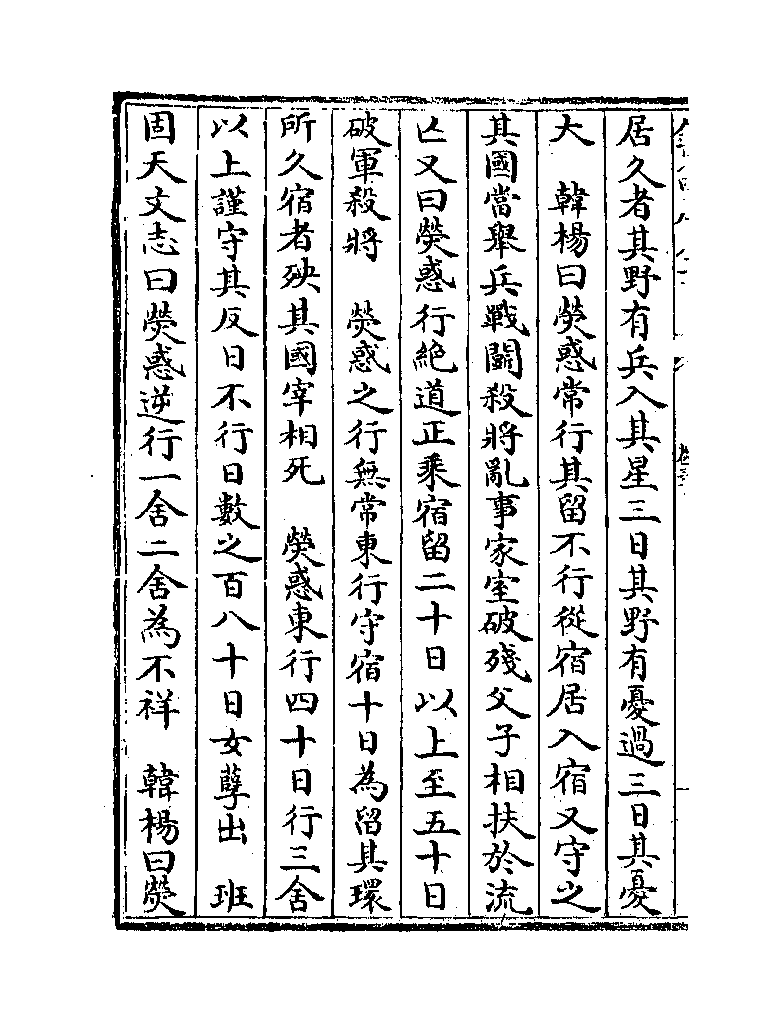 居久者其野有兵入其星三日其野有憂過三日其憂
大　韓楊曰熒惑常行其留不行從宿居入宿又守之
其國當舉兵戰鬭殺將亂事家室破殘父子相扶於流
亾又曰熒惑行絶道正乘宿留二十日以上至五十日
破軍殺將　熒惑之行無常東行守宿十日為留其環
所久宿者殃其國宰相死　熒惑東行四十日行三舍
以上謹守其反日不行日數之百八十日女孽出　班
固天文志曰熒惑逆行一舍二舍為不祥　韓楊曰熒